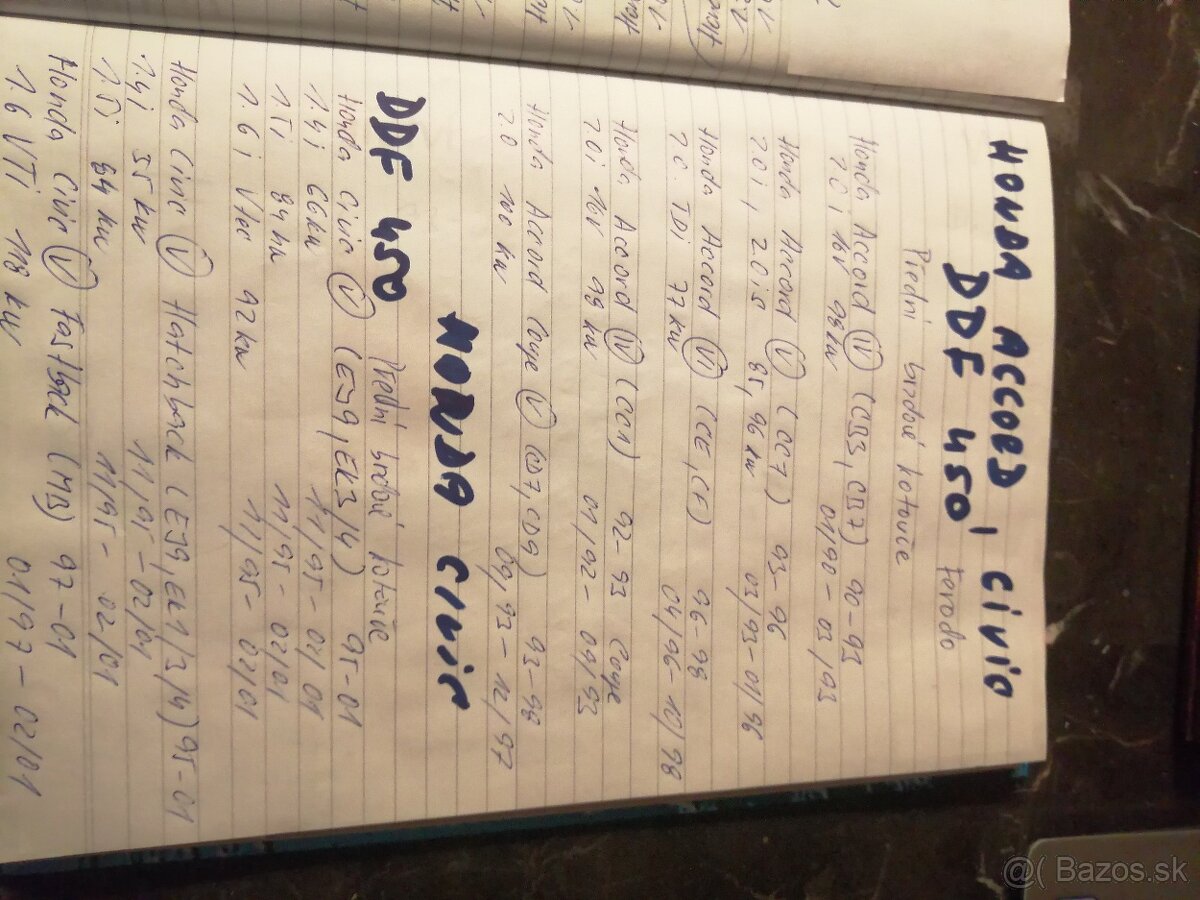 HONDA ACCORD, CIVIC
DDF 450 Ferodo
Přední brzdové kotouče
Honda Accord IV (CB3, CB7) 90-93
2.0i 16V 98kw 01/90 - 03/93
Honda Accord V (CC7) 93-96
2.0i, 2.0is 85, 96 kw 03/93-01/96
Honda Accord VI (CE, CF) 96-98
2.0 TDi 77kw 04/96-10/98
Honda Accord IV (CC1) 92-93 Coupe
2.0i 16V 98 kw 01/92 - 09/93
Honda Accord Coupe V (CD7, CD9) 93-98
2.0 100 kw 09/93-12/97
HONDA CIVIC
DDF 450 Přední brzdové kotouče
Honda Civic V (EJ9, EK3/4) 95-01
1.4i 66kw 11/95 - 02/01
1.5i 84kw 11/95 - 02/01
1.6i Vtec 92kw 11/95 - 02/01
Honda Civic V Hatchback (EJ9, EK1/3/4) 95-01
1.4i 55 kw 11/95-02/01
1.5i 84 kw 11/95 - 02/01
Honda Civic V Fastback (MB) 97-01
1.6 VTi 118 kw 01/97 - 02/01
@( Bazos.sk